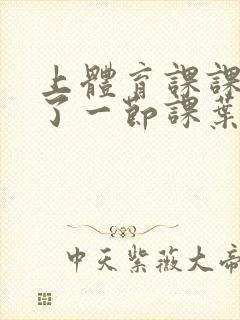 上體育課課
了一節課葉
中天紫薇大帝